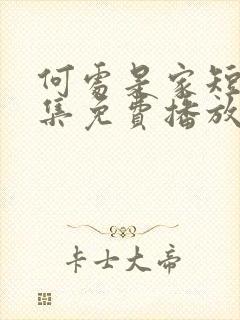 何處是家短
集免費播放
卡士大帝